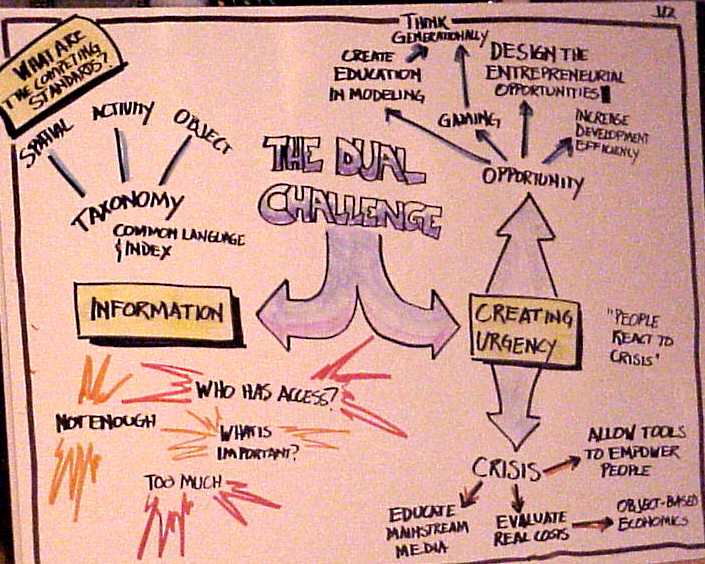 1/2
WHAT ARE
THE COMPETING
STANDARDS?
SPATIAL
ACTIVITY
OBJECT
TAXONOMY
COMMON LANGUAGE
& INDEX
THE DUAL
CHALLENGE
THINK
GENERATIONALLY
CREATE
EDUCATION
IN MODELING
GAMING
DESIGN THE
ENTREPRENEURIAL
OPPORTUNITIES
INCREASE
DEVELOPMENT
EFFICIENCY
OPPORTUNITY
INFORMATION
CREATING
URGENCY
"PEOPLE
REACT TO
CRISIS"
WHO HAS ACCESS?
NOT ENOUGH
WHAT IS
IMPORTANT?
TOO MUCH
CRISIS
ALLOW TOOLS
TO EMPOWER
PEOPLE
EDUCATE
MAINSTREAM
MEDIA
EVALUATE
REAL COSTS
OBJECT-BASED
ECONOMICS